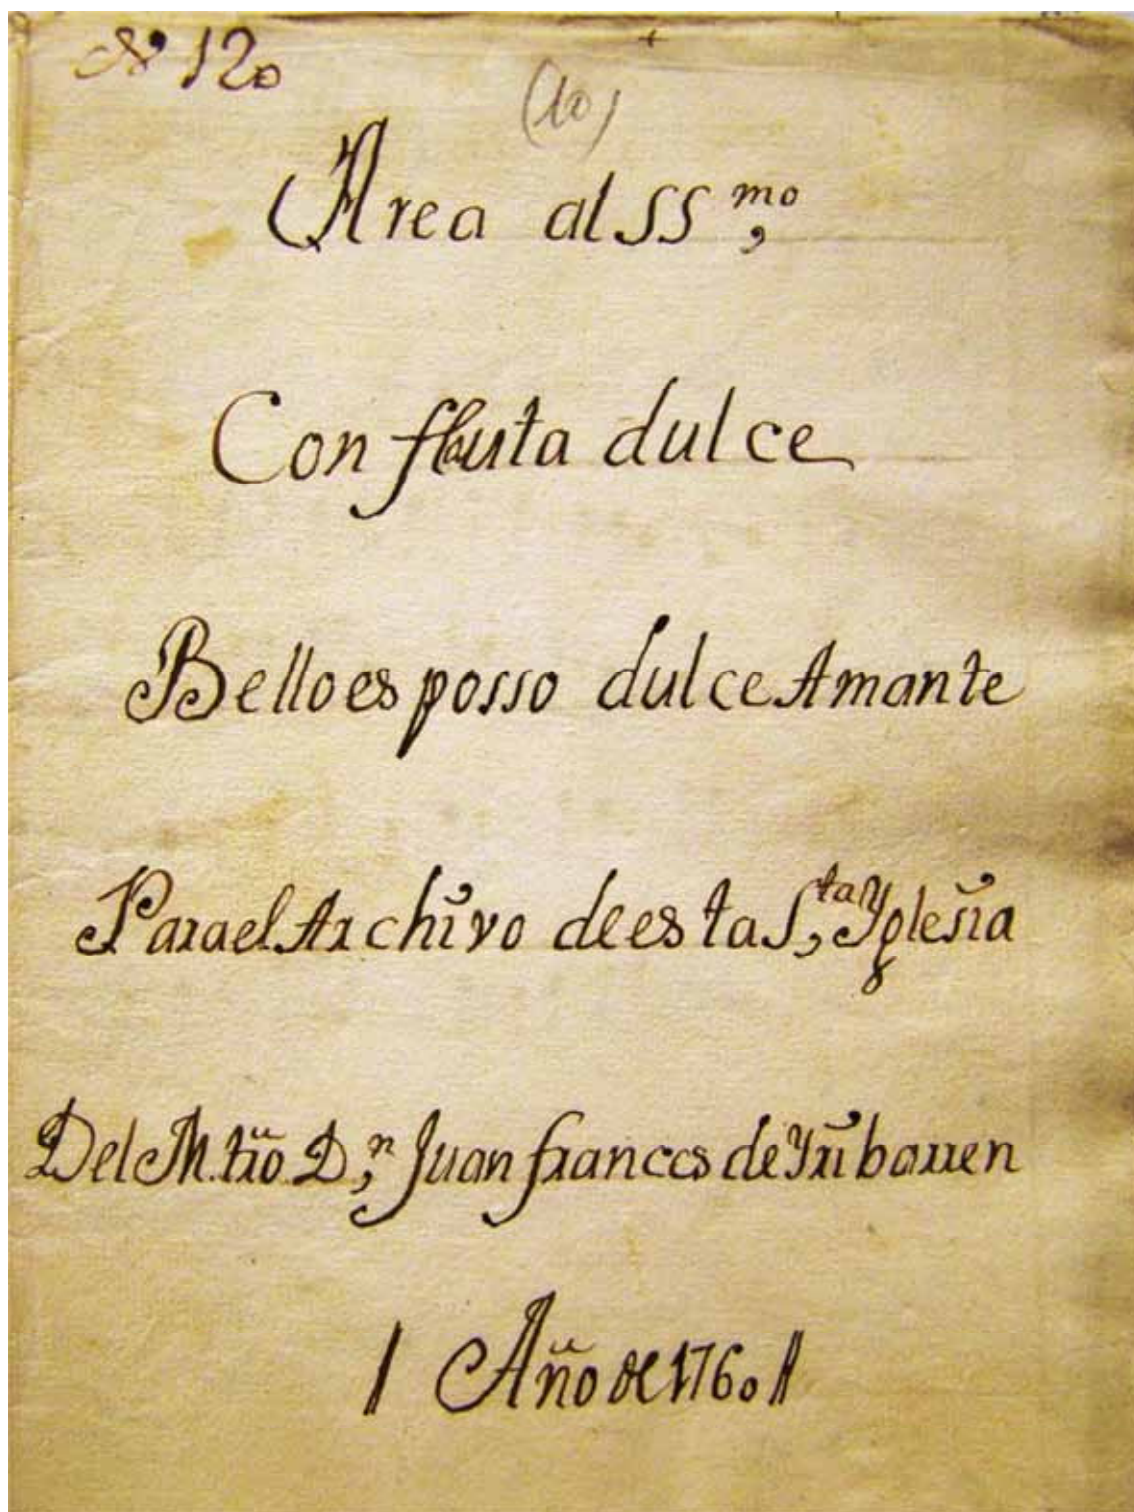 Nº 120
(10)
Area al SS.mo
Con flauta dulce
Bello esposso dulce Amante
Para el Archivo de esta S.ta Yglesia
Del M.tro D.n Juan frances de Yribarren
Año de 1760